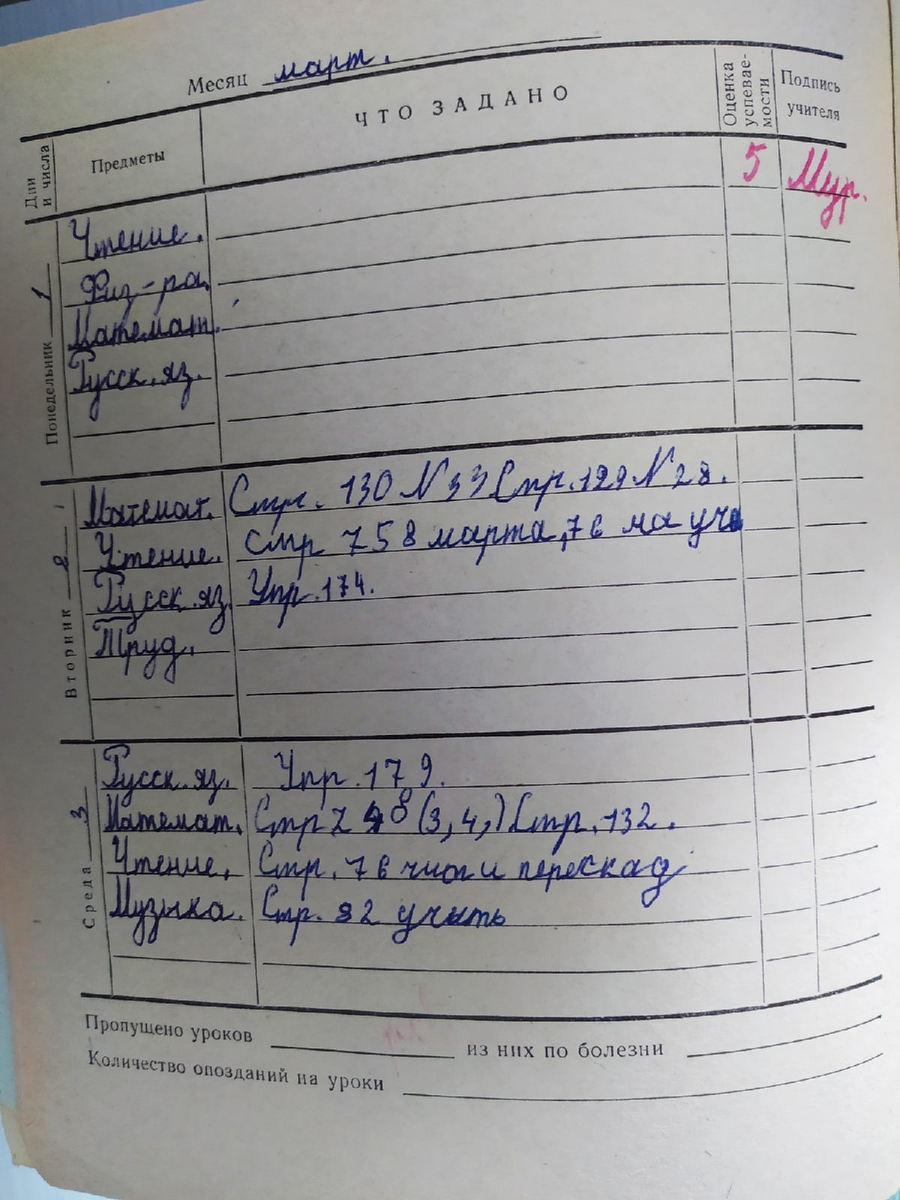 Месяц март.
Дни и числа
Предметы
ЧТО ЗАДАНО
Оценка успеваемости
Подпись учителя
Понедельник 1
Чтение. 5 Мур.
Физ-ра
Математ.
Русск. яз.
Вторник 2
Математ. Стр. 130 N 33 Стр. 129 N 28.
Чтение. Стр 75 8 марта, 76 на
Русск. яз. Упр. 174.
Труд.
Среда 3
Русск. яз. Упр. 179.
Математ. Стр (3, 4,) Стр. 132.
Чтение. Стр. 76 перескад
Музыка. Стр. 82 учить
Пропущено уроков из них по болезни
Количество опозданий на уроки